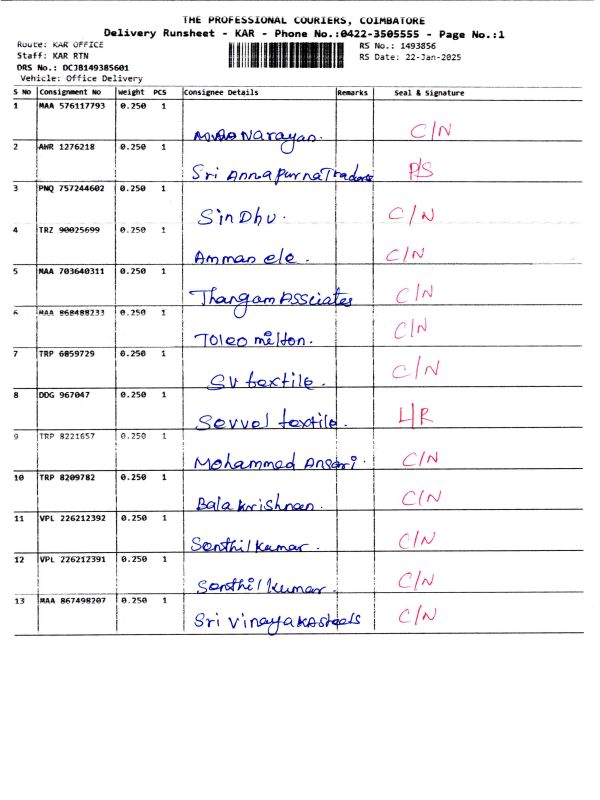 THE PROFESSIONAL COURIERS, COIMBATORE
Delivery Runsheet - KAR - Phone No.:0422-3505555 - Page No.:1
Route: KAR OFFICE RS No.: 1493856
Staff: KAR RTN RS Date: 22-Jan-2025
DRS No.: DCJB149385601
Vehicle: Office Delivery
S No Consignment No Weight PCS Consignee Details Remarks Seal & Signature
1 MAA 576117793 0.250 1
Narayan. C/N
2 AWR 1276218 0.250 1
Sri Annapurna Traders P/S
3 PNQ 757244602 0.250 1
Sindhu. C/N
4 TRZ 90025699 0.250 1
Amman ele. C/N
5 MAA 703640311 0.250 1
Thangam Assciates C/N
6 MAA 868488233 0.250 1
Toleo milton. C/N
7 TRP 6859729 0.250 1
SV textile. C/N
8 DDG 967047 0.250 1
textile.
9 TRP 8221657 0.250 1
Mohammed Ansari. C/N
10 TRP 8209782 0.250 1
Bala Krishnan. C/N
11 VPL 226212392 0.250 1
Senthil Kumar. C/N
12 VPL 226212391 0.250 1
Senthil Kumar. C/N
13 MAA 867498207 0.250 1
Sri Vinayaka steels C/N